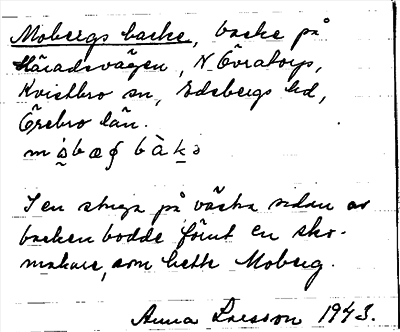 Mobergs backe, backe på
Häradsvägen, N Övratorp,
Kvistbro sn, Edsbergs hd,
Örebro län.
I en stuga på västra sidan av
backen bodde förut en sko-
makare, som hette Moberg.
Anna Larsson 1943.